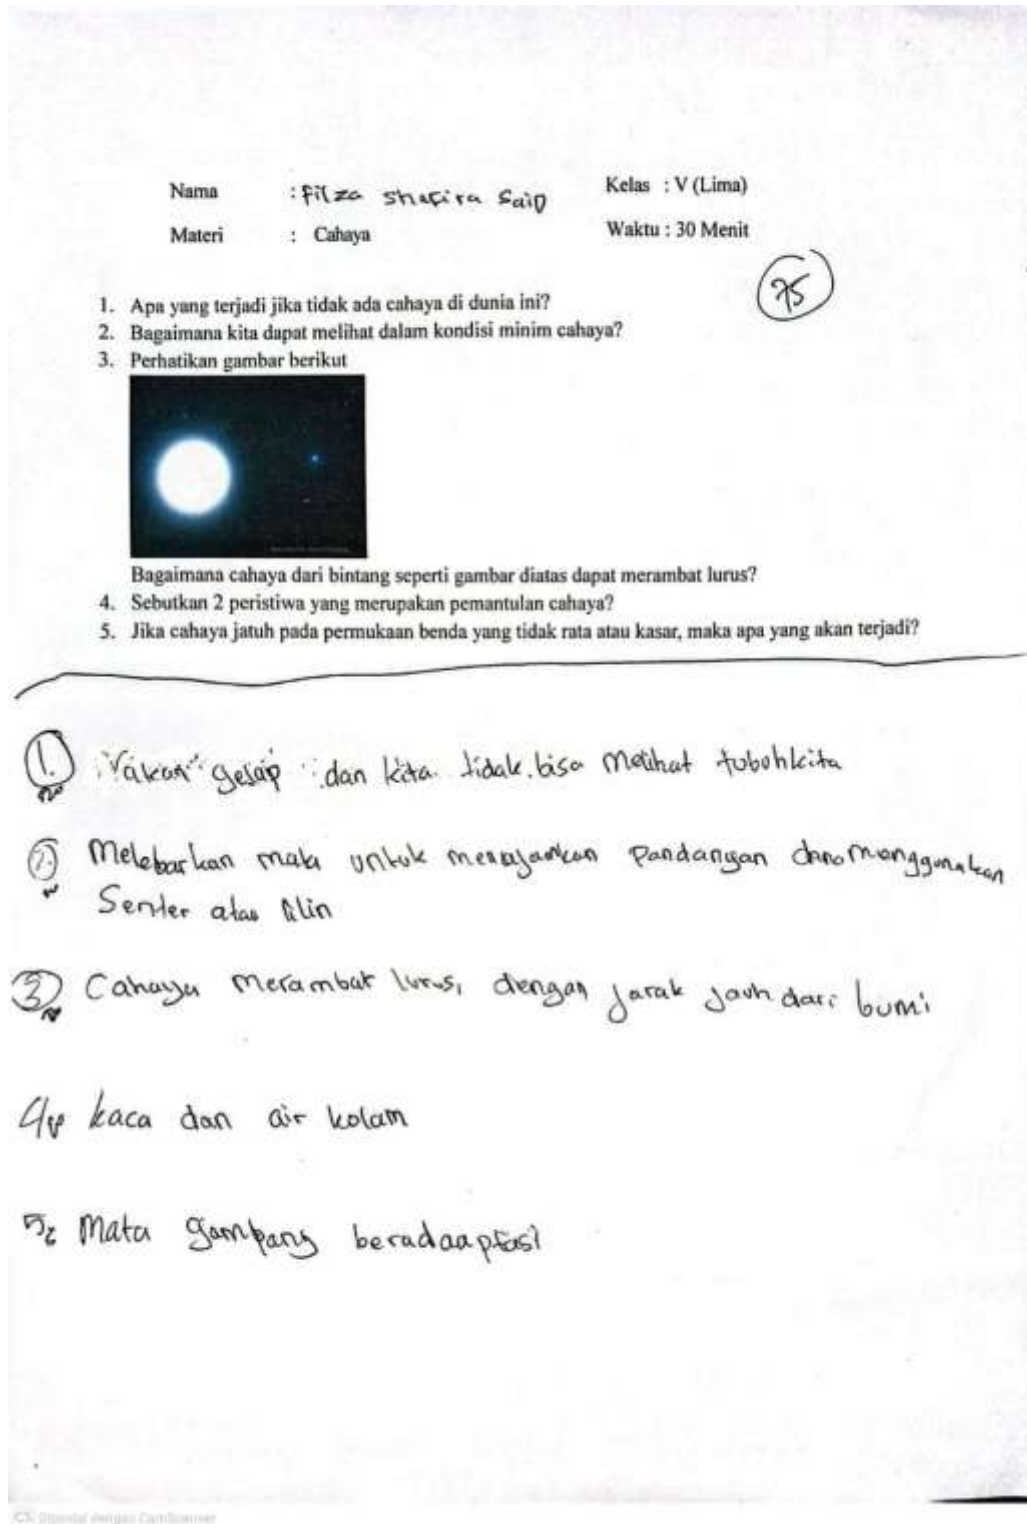 Nama : Filza Shafira Said Kelas : V (Lima)
Materi : Cahaya Waktu : 30 Menit
75
1. Apa yang terjadi jika tidak ada cahaya di dunia ini?
2. Bagaimana kita dapat melihat dalam kondisi minim cahaya?
3. Perhatikan gambar berikut
Bagaimana cahaya dari bintang seperti gambar diatas dapat merambat lurus?
4. Sebutkan 2 peristiwa yang merupakan pemantulan cahaya?
5. Jika cahaya jatuh pada permukaan benda yang tidak rata atau kasar, maka apa yang akan terjadi?
1. akan gelap dan kita tidak bisa melihat tubuh kita
2. Melebarkan mata untuk pandangan menggunakan
Senter atau lilin
3. Cahaya merambat lurus, dengan jarak jauh dari bumi
4. kaca dan air kolam
5. Mata gampang beradaaptasi
CS Dipindai dengan CamScanner